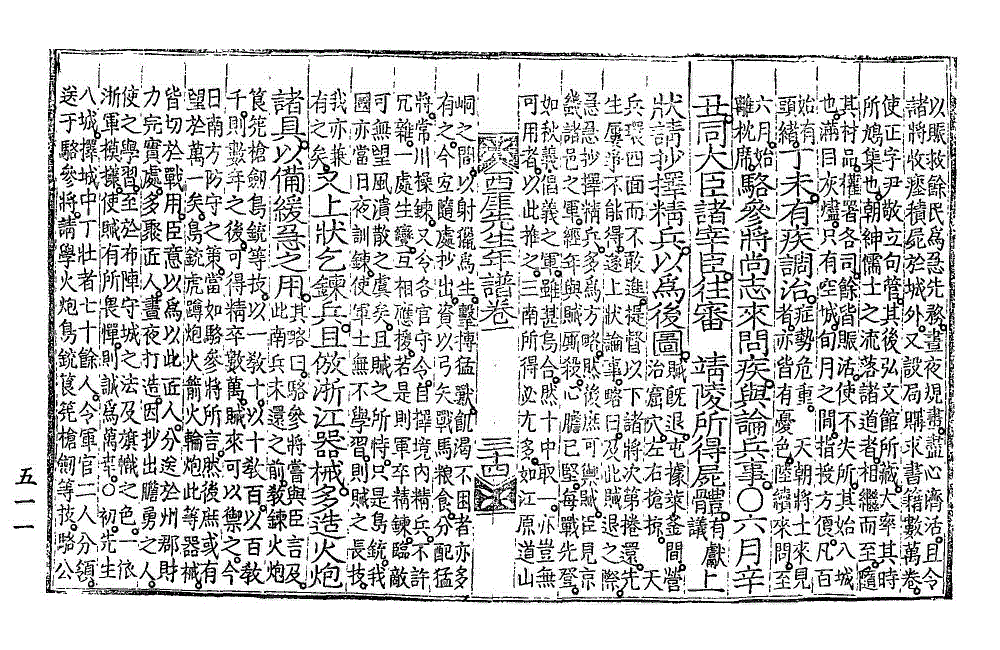 以賑救餘民爲急先務晝夜規畫盡心濟活且令
諸將收瘞積屍於城外又設局購求書籍數萬卷
使正字尹敬立句管其後弘文館所藏大率其時
所鳩集也朝紳儒士之流落諸道者相繼而至隨
其材品擢署各司餘皆賑活使不失所其始入城
也滿目灰燼只有空城旬月之間指授方便凡百
始有
頭緖丁未有疾調治症勢危重天朝將士來見
者亦皆有憂色陸續來問至
六月始
離枕席駱參將尚志來問疾與論兵事○六月辛
丑同大臣諸宰臣往審 靖陵所得屍體有獻
議上
狀請抄擇精兵以爲後圖賊旣退屯據萊釜間營
治窟穴左右搶掠 天
兵環四面而不敢進提督以下諸將次第捲還先
生屢爭不能得遂上狀論事略曰及此賊退之際
急急抄擇精兵多方爲略然後庶可禦賊臣見京
畿諸邑之軍經年與賊廝殺心膽已堅每戰先登
如秋義倡義之軍雖甚烏合然十中取一亦豈無
可用者以此推之三南所得必尤多如江原道山
西厓先生年譜卷一 三十四
峒之間以射獵爲生擊搏猛獸飢渴不困者亦多
有之今宜隨處召募資以弓矢戰馬粮食分配猛
將常川操鍊又令各官守令自擇境內精兵不許
冗雜一處生變互相應援若是則軍卒精鍊臨敵
可無望風潰散之虞矣且賊之所恃只是鳥銃我
國亦當日夜訓鍊使軍士無不學習則賊之長技
我亦兼
有之矣又上狀乞鍊兵且倣浙江器械多造火炮
諸具以備緩急之用其略曰駱參將嘗與臣言及
此南兵未還之前敎鍊火炮
筤筅槍劒鳥銃等技以一敎十以十敎百以百敎
千則數年之後可得精卒數萬賊來可以禦之今
日南方防守之策當如駱參將所言然後庶或有
望於萬一矣鳥銃虎蹲炮火箭火輪炮此等器械
皆切於戰用臣意以爲以此匠人分送於州郡財
力完實處多聚匠人晝夜打造因抄出膽勇之人
使之學習至於布陣守城之法及旗幟之色一依
浙軍模㨾使賊有所畏憚則誠爲萬幸○初先生
入城擇城中丁壯者七十餘人令軍官二人分領
送于駱參將請學火炮鳥銃筤筅槍劒等技駱公
五一一